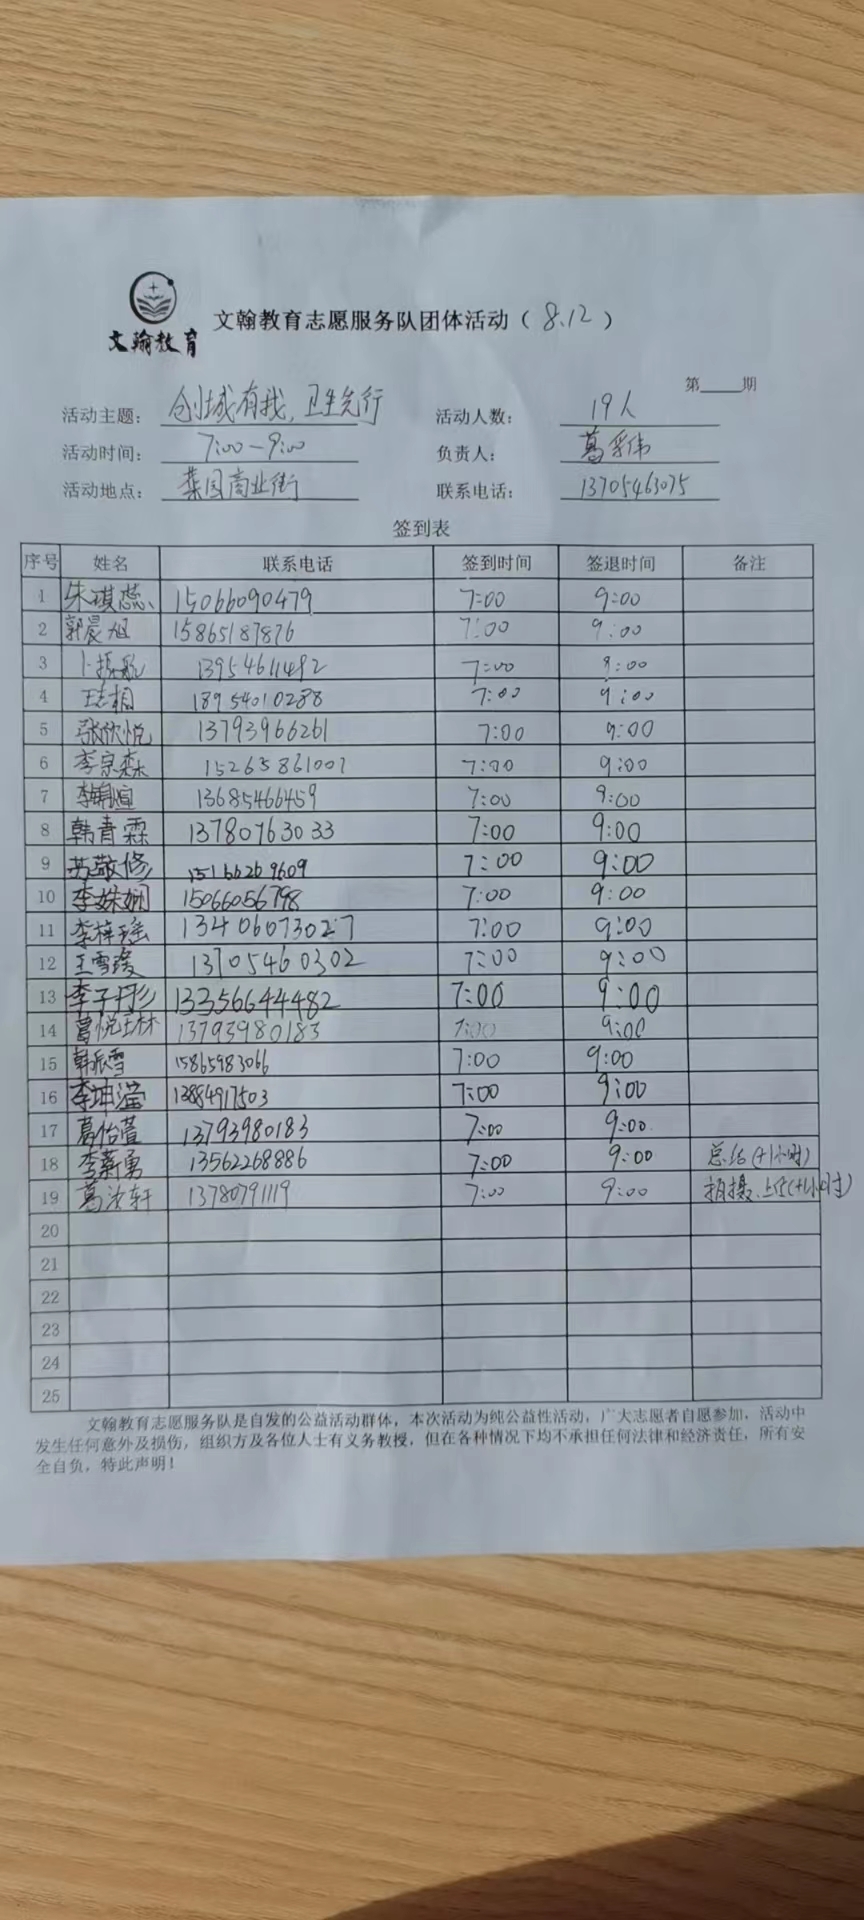 文翰教育
文翰教育志愿服务队团体活动（8.12）
第____期
活动主题：创城有我，卫生先行 活动人数：19人
活动时间：7:00-9:00 负责人：葛采伟
活动地点：菜园商业街 联系电话：13705463075
签到表
序号 姓名 联系电话 签到时间 签退时间 备注
1 朱琪蕊 15066090479 7:00 9:00
2 郭晨旭 15865187876 7:00 9:00
3 卜振航 13954611492 7:00 9:00
4 王志桐 18954010288 7:00 9:00
5 张欣悦 13793966261 7:00 9:00
6 李宗森 15265861007 7:00 9:00
7 13685466459 7:00 9:00
8 韩青霖 13780763033 7:00 9:00
9 苏敬修 15166269609 7:00 9:00
10 李姝娴 15066056798 7:00 9:00
11 李梓瑶 13406073027 7:00 9:00
12 王雪瑗 13705460302 7:00 9:00
13 李子彤 13356644482 7:00 9:00
14 葛悦琳 13793980183 7:00 9:00
15 韩振雪 15865983066 7:00 9:00
16 李坤滢 13884917503 7:00 9:00
17 葛怡萱 13793980183 7:00 9:00
18 李薪勇 13562268886 7:00 9:00 总结(+1小时)
19 葛汝轩 13780791119 7:00 9:00 拍摄、上传(+1小时)
20
21
22
23
24
25
文翰教育志愿服务队是自发的公益活动群体，本次活动为纯公益性活动，广大志愿者自愿参加，活动中
发生任何意外及损伤，组织方及各位人士有义务教授，但在各种情况下均不承担任何法律和经济责任，所有安
全自负，特此声明！